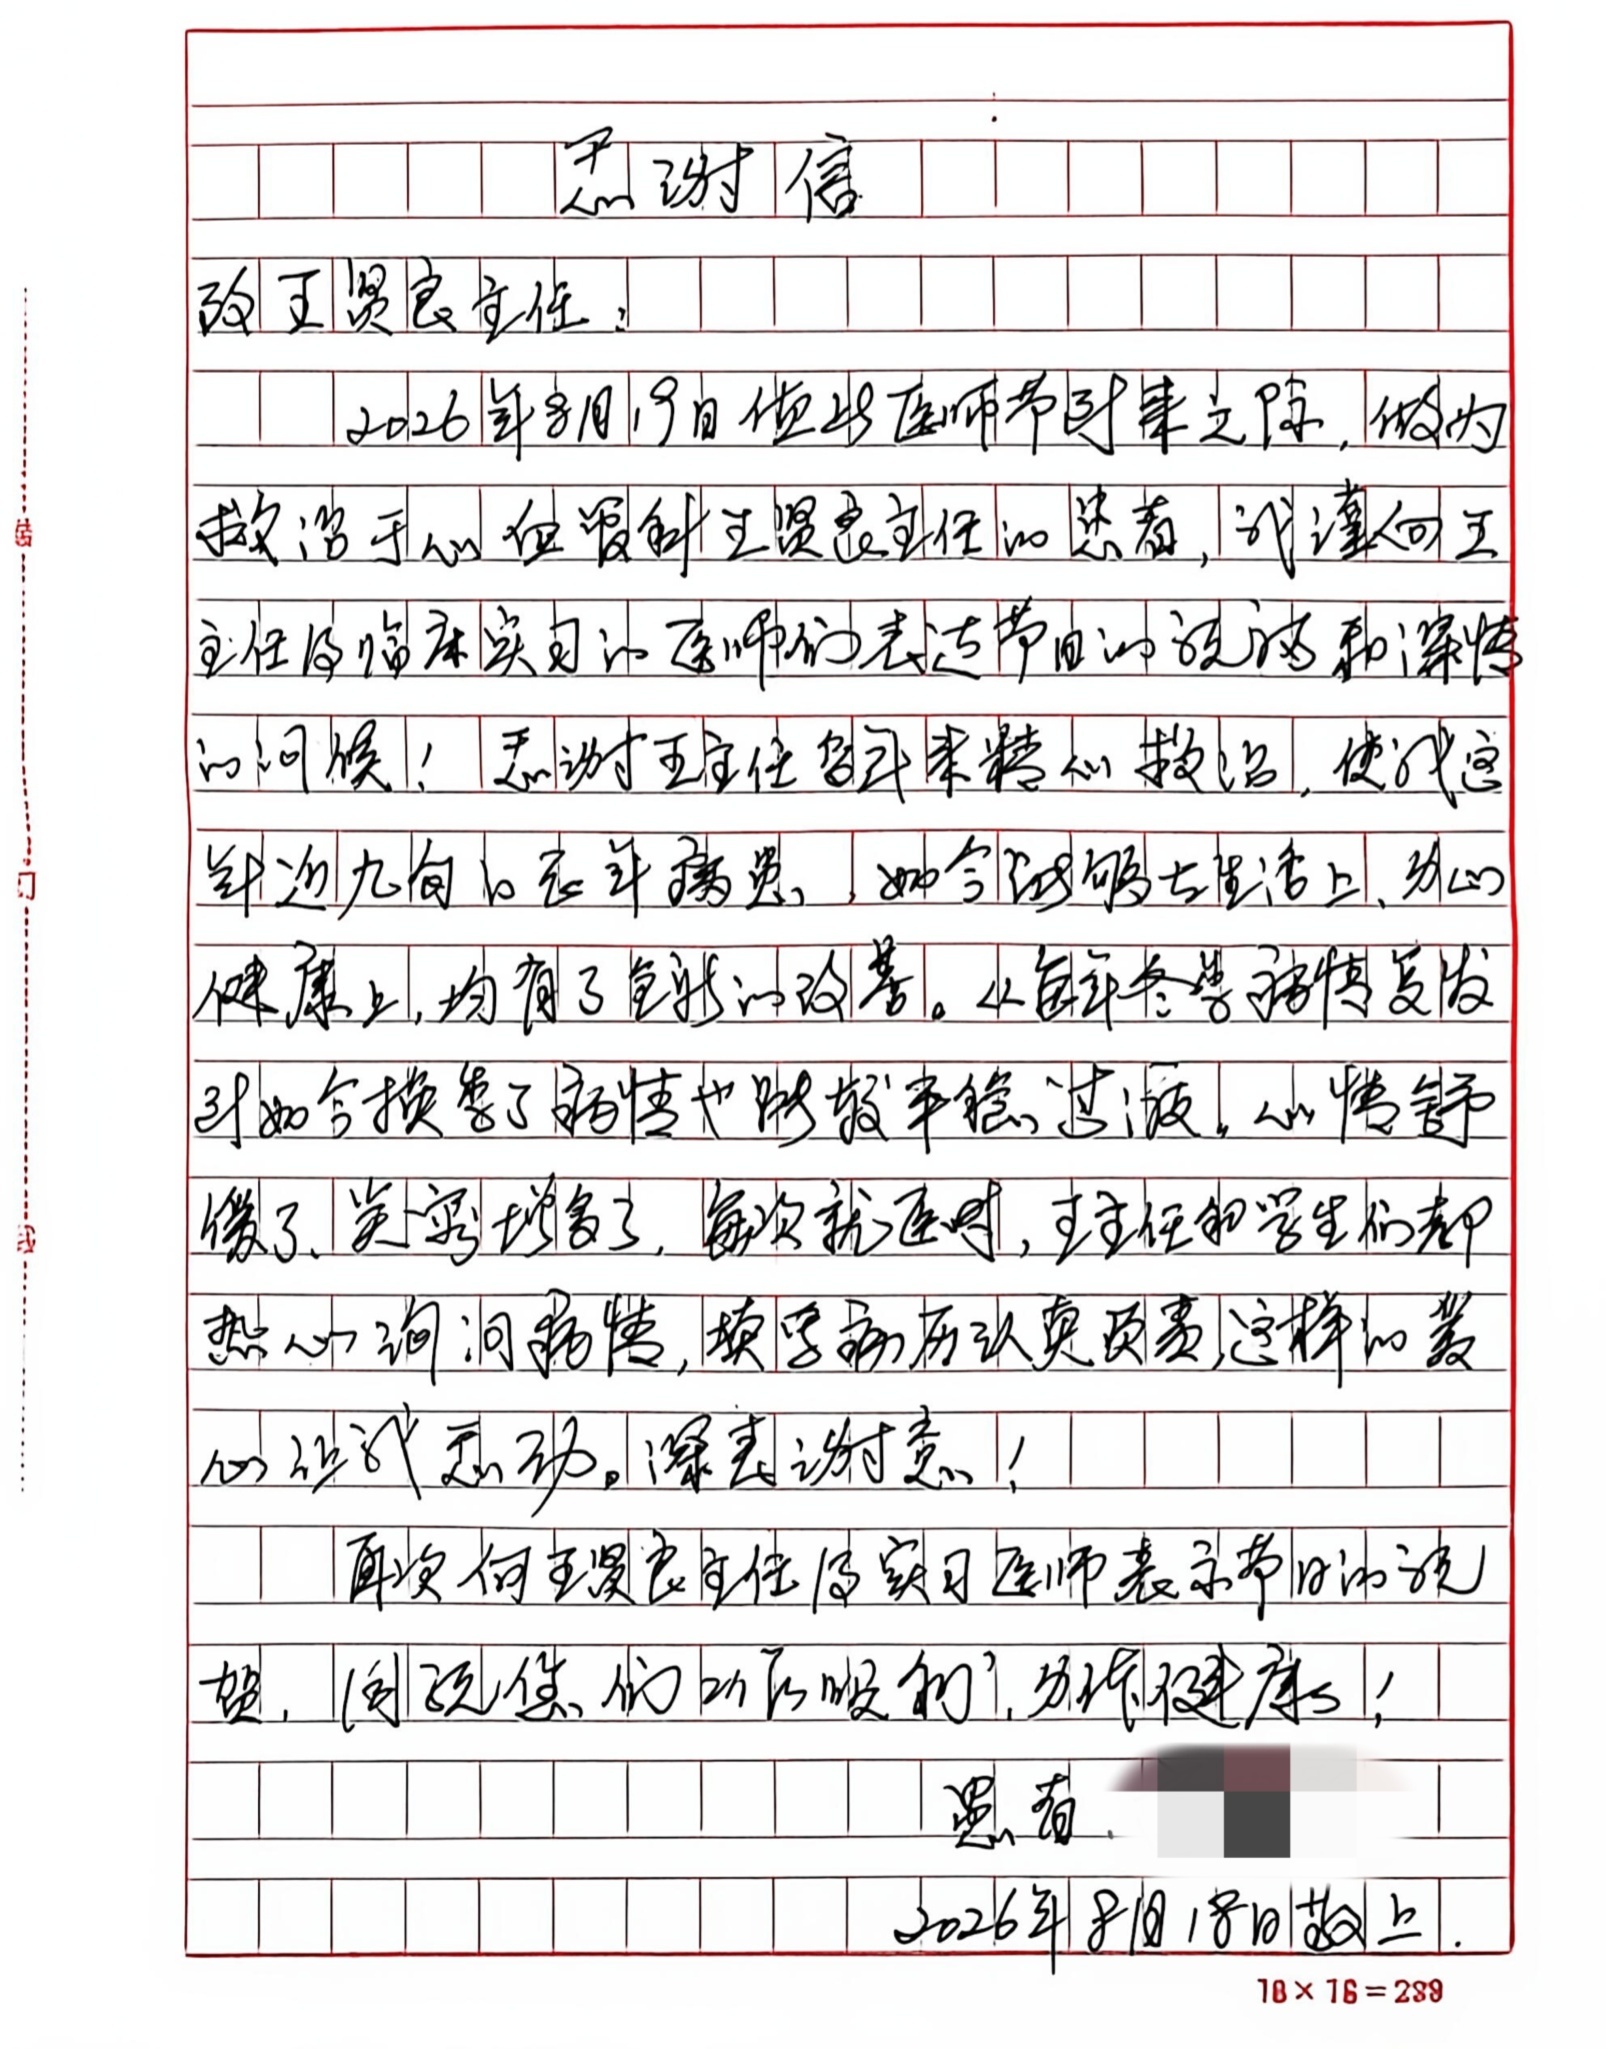 感谢信
致王贤良主任：
2026年8月19日值此医师节到来之际，做为
救治于心血管科王贤良主任的患者，我谨向王
主任及临床实习的医师们表达节日的祝福和深情
的问候！感谢王主任多年来精心救治，使我这
年近九旬的老年病患，如今能够在生活上、身心
健康上，均有了全新的改善。从每年冬季病情复发
到如今换季了病情也能较平稳过渡，心情舒
缓了、笑容增多了，每次就医时，王主任和学生们都
热心询问病情，填写病历认真负责，这样的爱
心让我感动。深表谢意！
再次向王贤良主任及实习医师表示节日的祝
贺，同祝您们工作顺利，身体健康！
患者
2026年8月18日敬上.
18×16=288
装
订
线